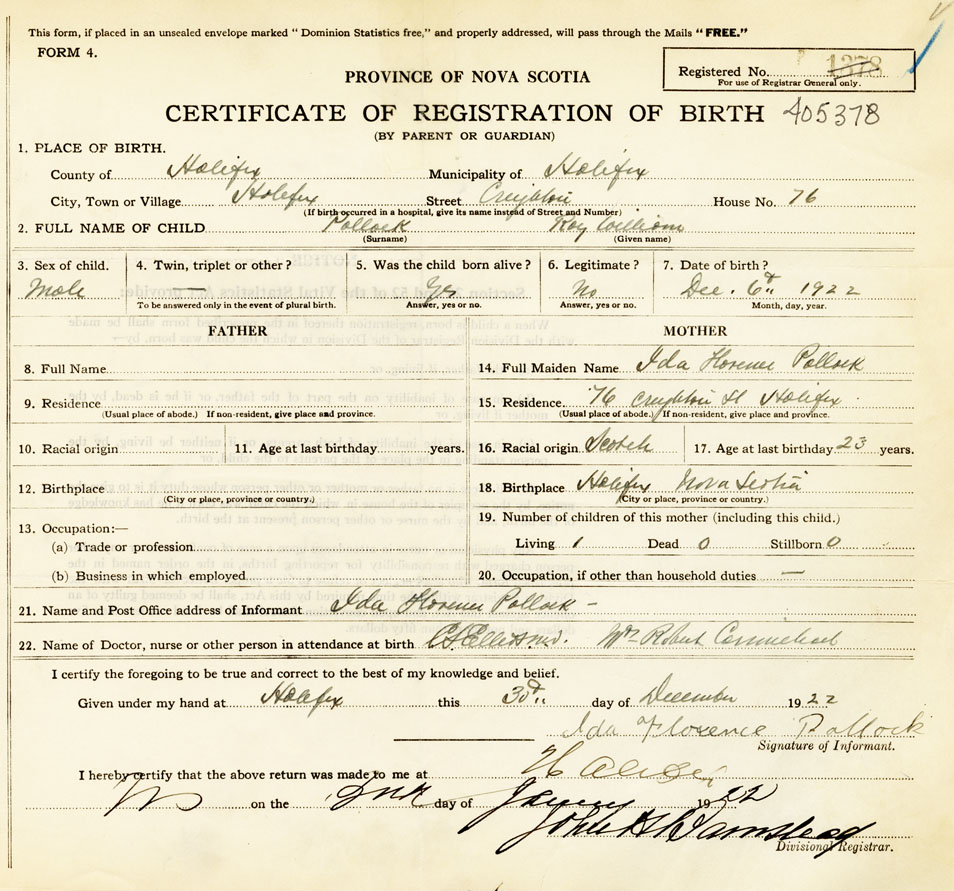 This form, if placed in an unsealed envelope marked " Dominion Statistics free," and properly addressed, will pass through the Mails "FREE."
FORM 4.
Registered No. 1378
For use of Registrar General only.
PROVINCE OF NOVA SCOTIA
CERTIFICATE OF REGISTRATION OF BIRTH 405378
(BY PARENT OR GUARDIAN)
1. PLACE OF BIRTH.
County of Halifax Municipality of Halifax
City, Town or Village Halifax Street Creighton House No. 76
(If birth occurred in a hospital, give its name instead of Street and Number)
2. FULL NAME OF CHILD Pollock Roy William
(Surname) (Given name)
3. Sex of child. 4. Twin, triplet or other? 5. Was the child born alive? 6. Legitimate? 7. Date of birth?
Male — Yes No Dec. 6th 1922
To be answered only in the event of plural birth. Answer, yes or no. Answer, yes or no. Month, day, year.
FATHER MOTHER
8. Full Name 14. Full Maiden Name Ida Florence Pollock
9. Residence 15. Residence 76 Creighton St Halifax
(Usual place of abode.) If non-resident, give place and province. (Usual place of abode.) If non-resident, give place and province.
10. Racial origin 11. Age at last birthday years. 16. Racial origin Scotch 17. Age at last birthday 23 years.
12. Birthplace 18. Birthplace Halifax Nova Scotia
(City or place, province or country.) (City or place, province or country.)
13. Occupation:— 19. Number of children of this mother (including this child.)
(a) Trade or profession Living 1 Dead 0 Stillborn 0
(b) Business in which employed 20. Occupation, if other than household duties —
21. Name and Post Office address of Informant Ida Florence Pollock -
22. Name of Doctor, nurse or other person in attendance at birth Mrs Robert Carmichael
I certify the foregoing to be true and correct to the best of my knowledge and belief.
Given under my hand at Halifax this 30th day of December 1922
Ida Florence Pollock
Signature of Informant.
I hereby certify that the above return was made to me at Halifax
N S on the day of 1922
John
Divisional Registrar.